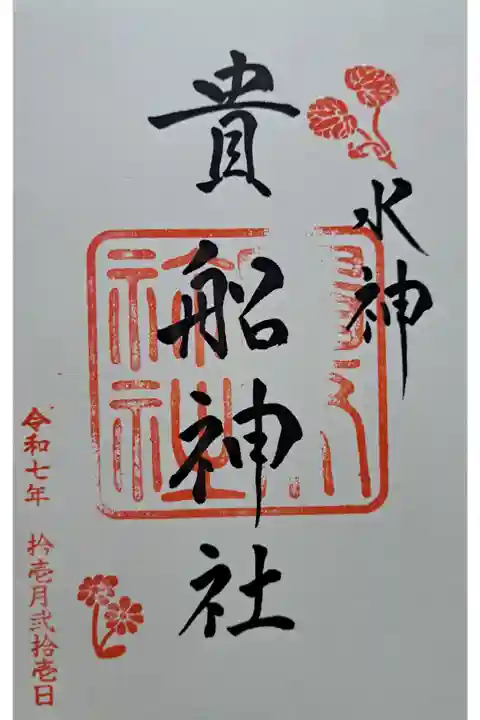 水神
貴船神社
令和七年 拾壱月弐拾壱日
神社